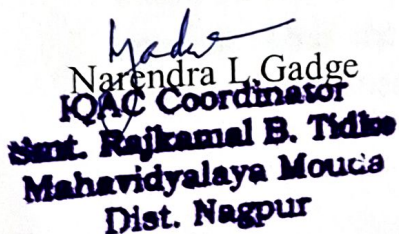 Narendra L Gadge
IQAC Coordinator
Smt. Rajkamal B. Tidke
Mahavidyalaya Mouda
Dist. Nagpur